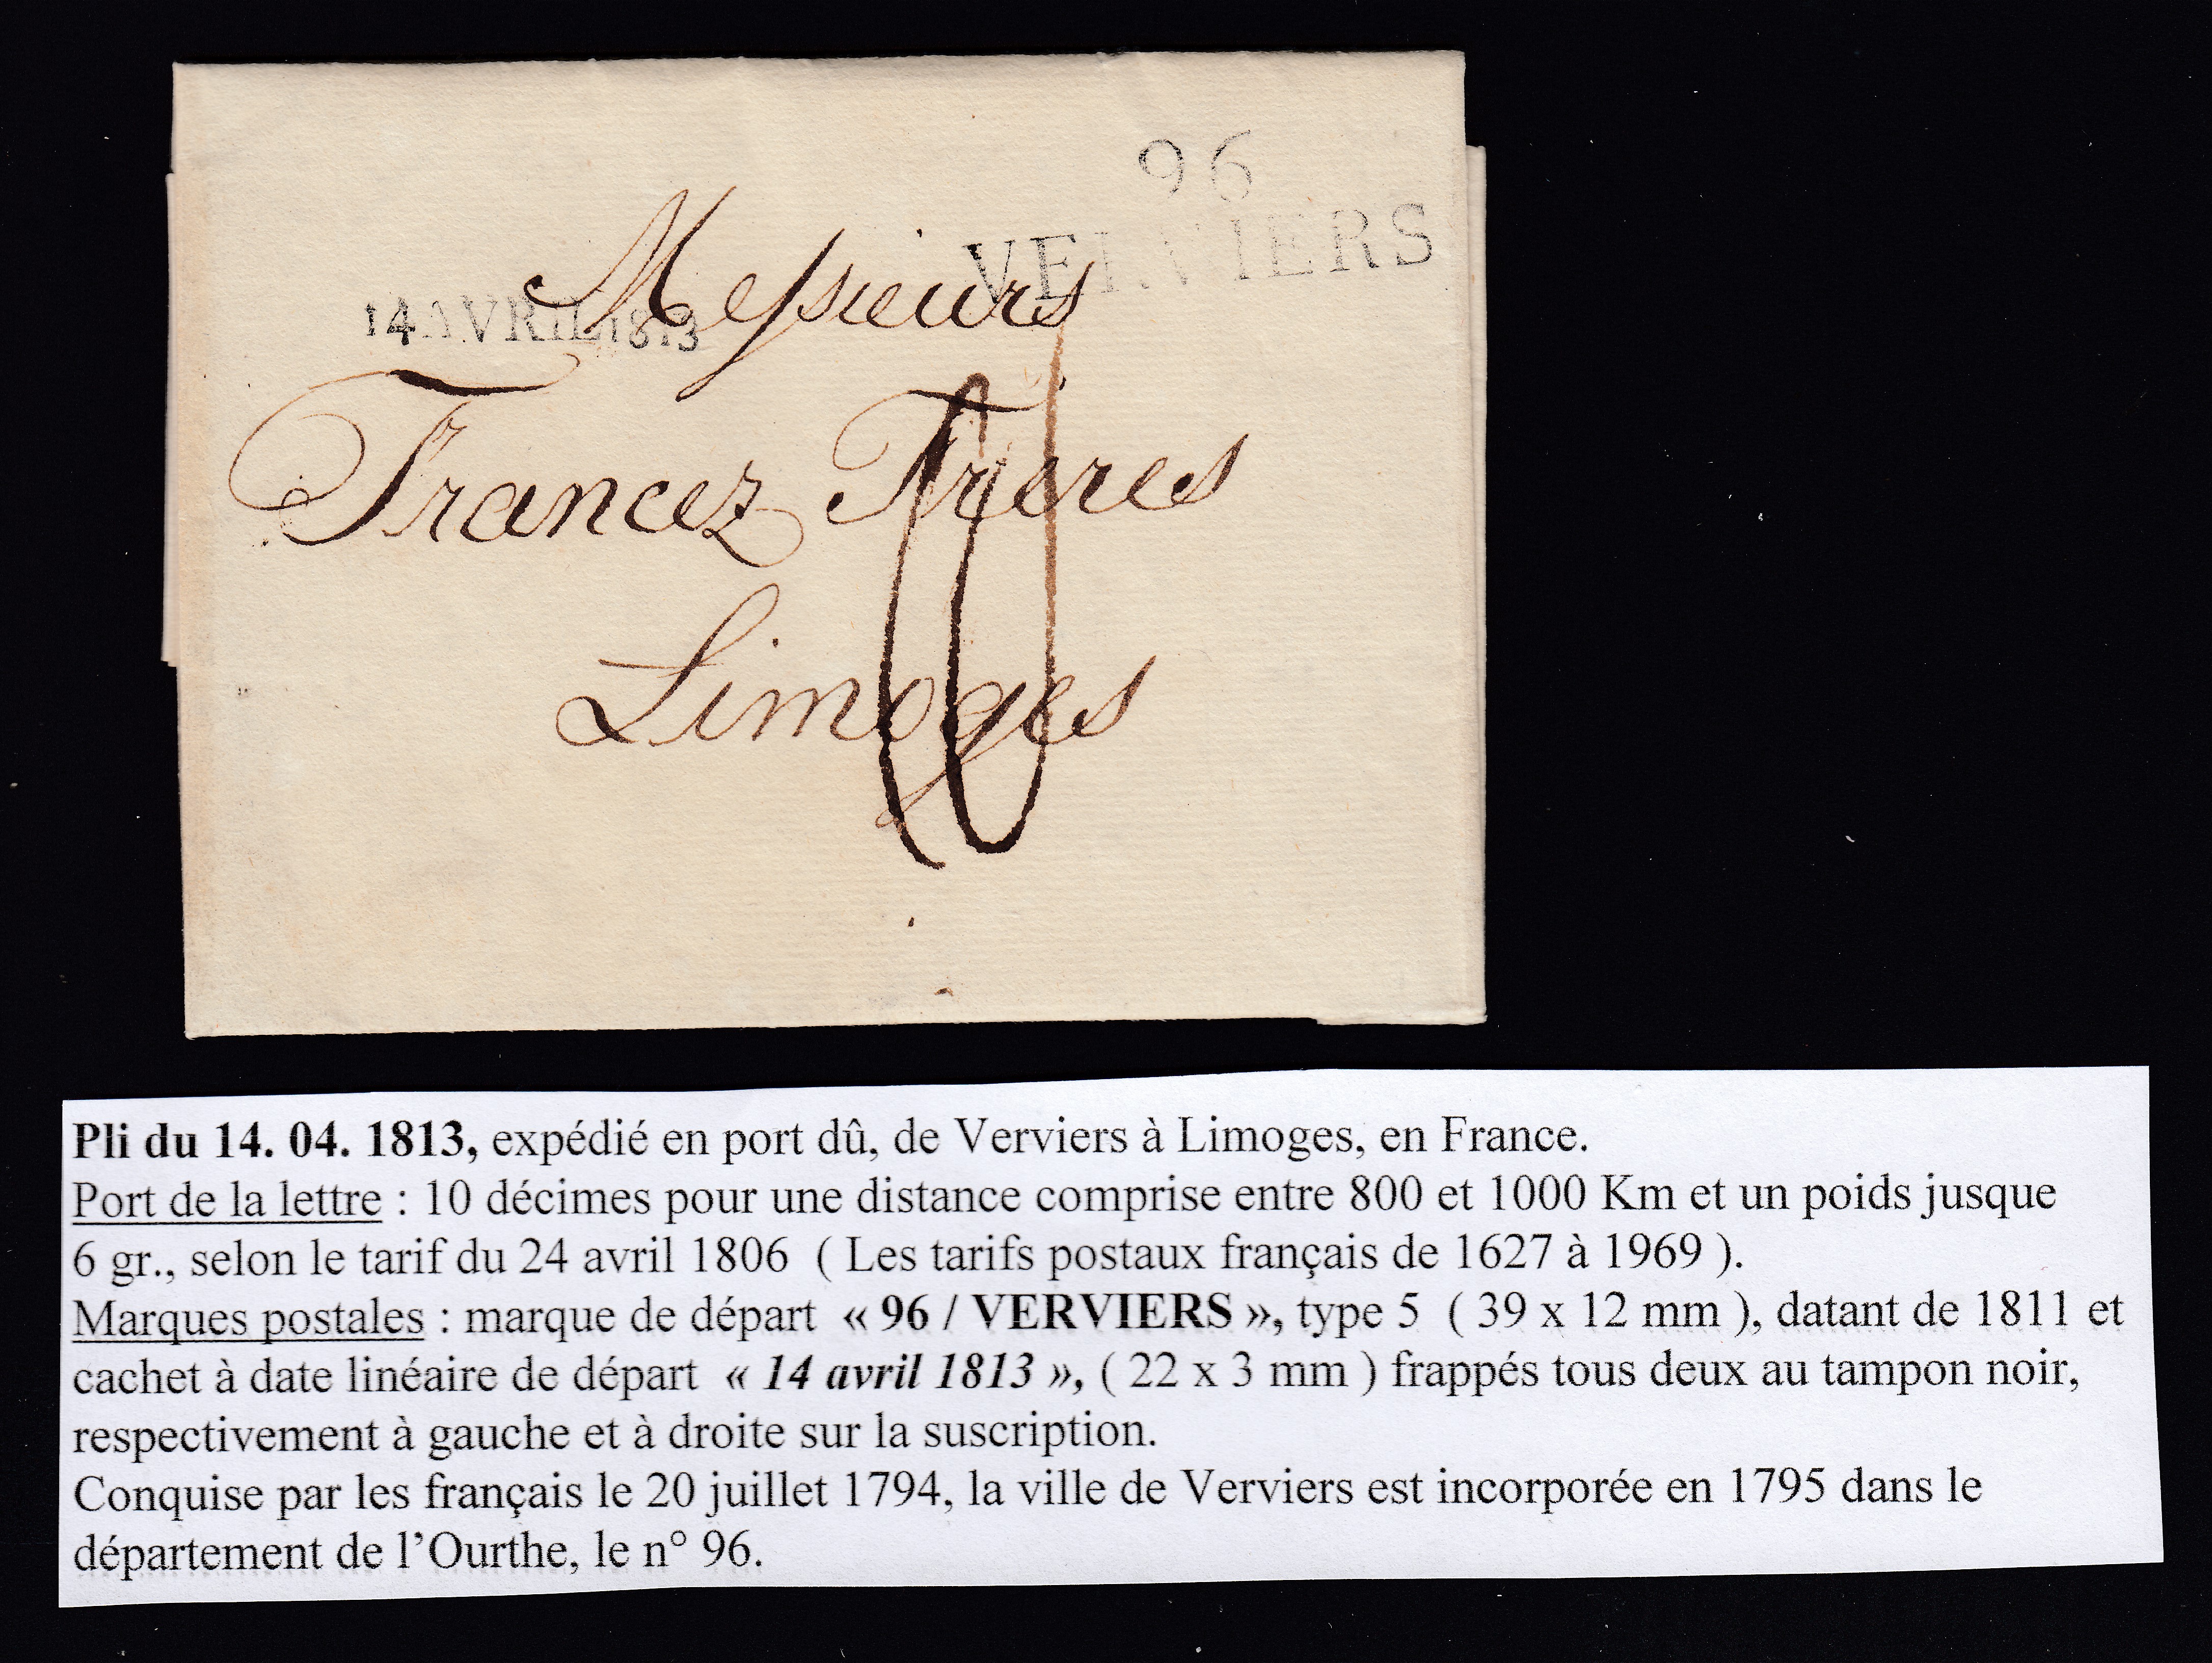 96
VERVIERS
14 AVRIL 1813
Messieurs
Francez Frères
Limoges
10
Pli du 14. 04. 1813, expédié en port dû, de Verviers à Limoges, en France.
Port de la lettre : 10 décimes pour une distance comprise entre 800 et 1000 Km et un poids jusque
6 gr., selon le tarif du 24 avril 1806 ( Les tarifs postaux français de 1627 à 1969 ).
Marques postales : marque de départ « 96 / VERVIERS », type 5 ( 39 x 12 mm ), datant de 1811 et
cachet à date linéaire de départ « 14 avril 1813 », ( 22 x 3 mm ) frappés tous deux au tampon noir,
respectivement à gauche et à droite sur la suscription.
Conquise par les français le 20 juillet 1794, la ville de Verviers est incorporée en 1795 dans le
département de l’Ourthe, le n° 96.